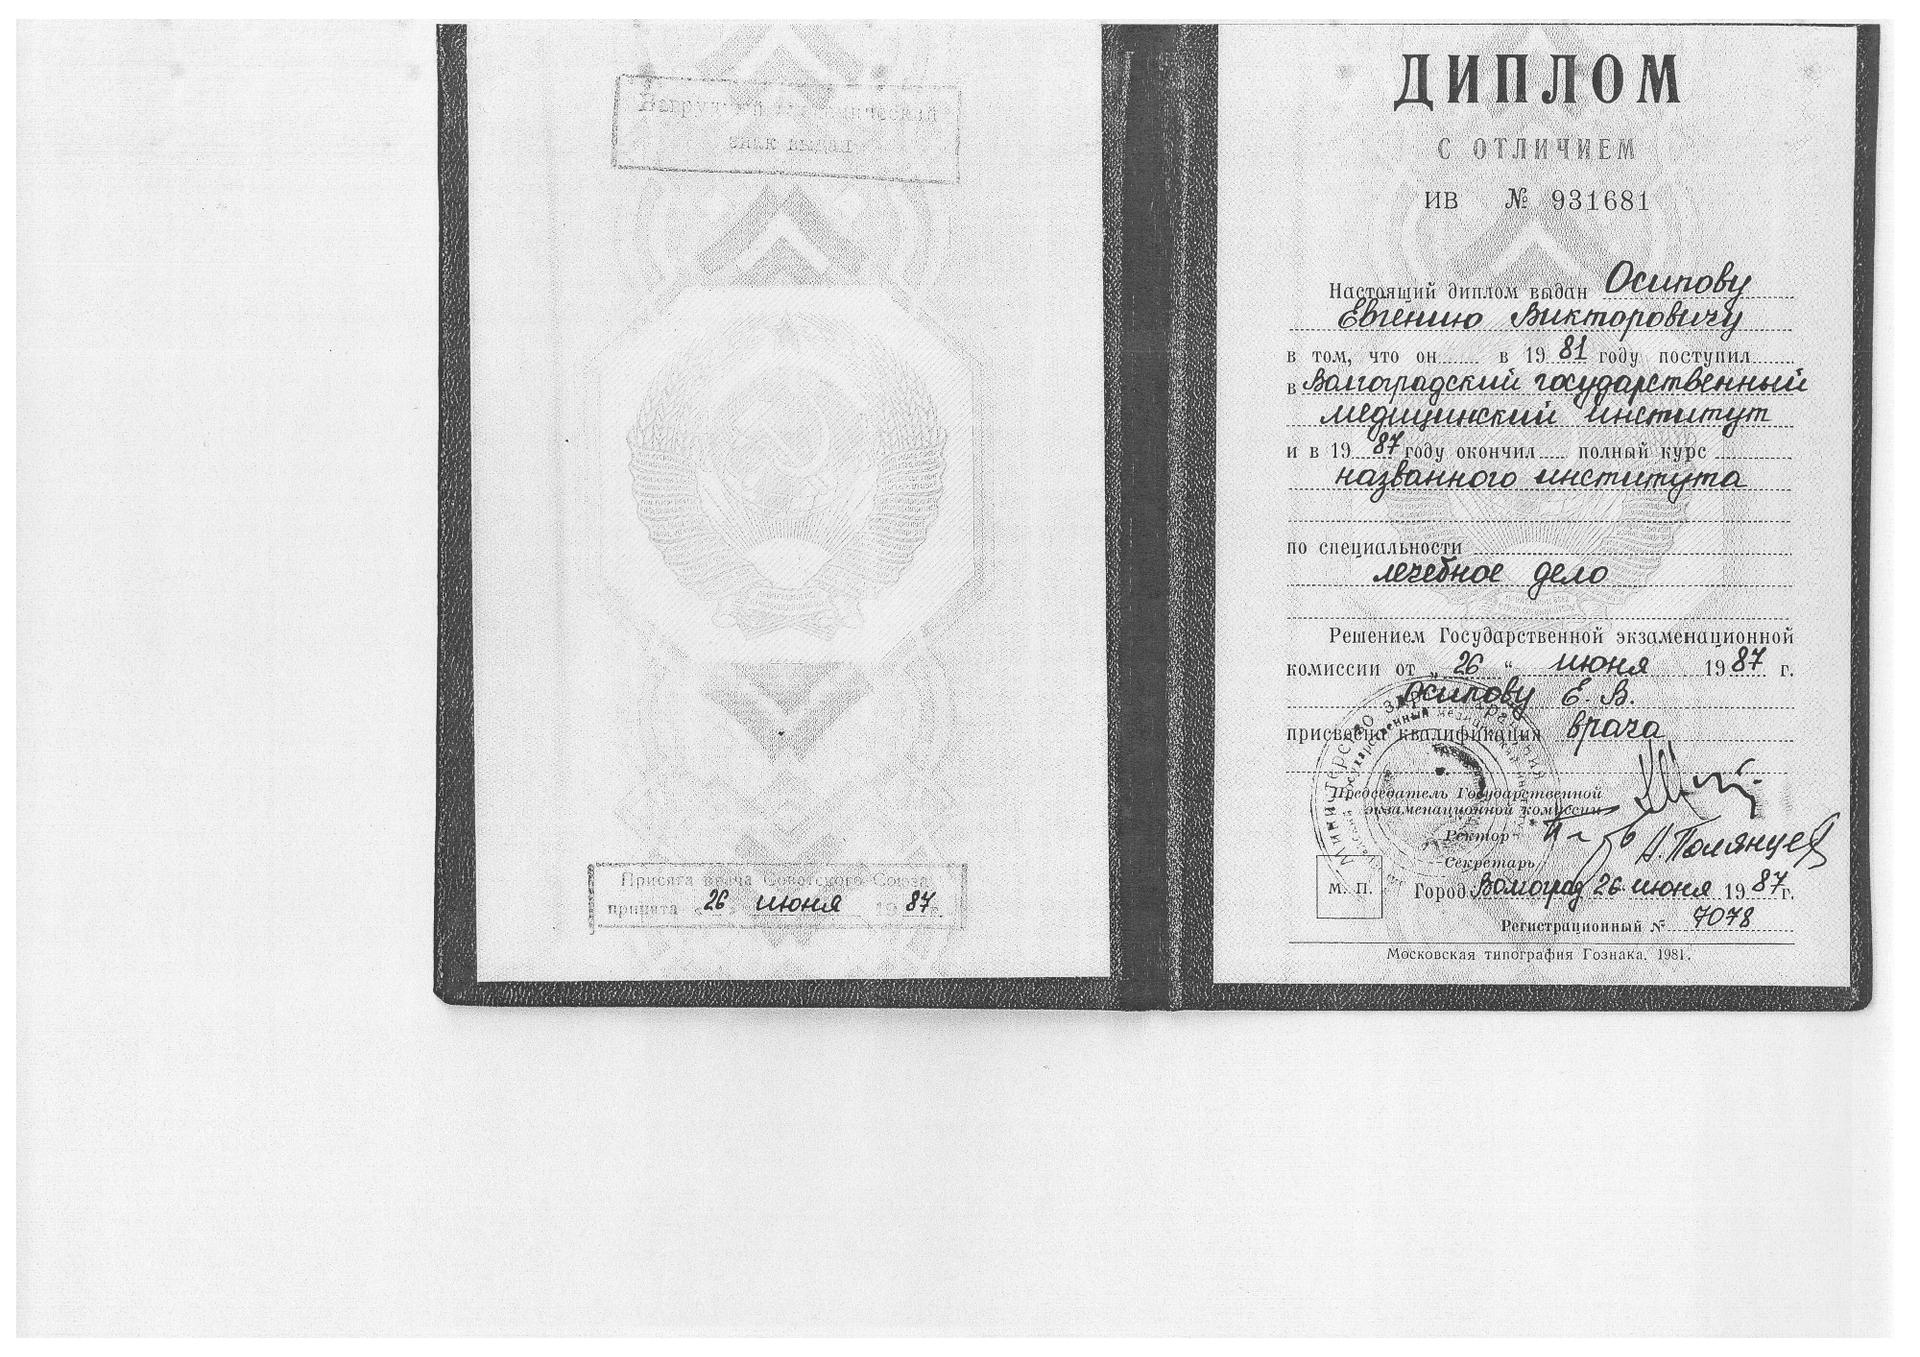 Нагрудный академический
знак выдал
Присяга врача Советского Союза
принята « 26 » июня 1987 г.
ДИПЛОМ
С ОТЛИЧИЕМ
ИВ № 931681
Настоящий диплом выдан Осипову
Евгению Викторовичу
в том, что он в 1981 году поступил
в Волгоградский государственный
медицинский институт
и в 1987 году окончил полный курс
названного института
по специальности
лечебное дело
Решением Государственной экзаменационной
комиссии от „ 26 “ июня 1987 г.
Осипову Е. В.
присвоена квалификация врача
Председатель Государственной
экзаменационной комиссии
Ректор
Секретарь Н. Полянцев
М. П. Город Волгоград, 26 июня 1987 г.
Регистрационный № 7078
Московская типография Гознака. 1981.